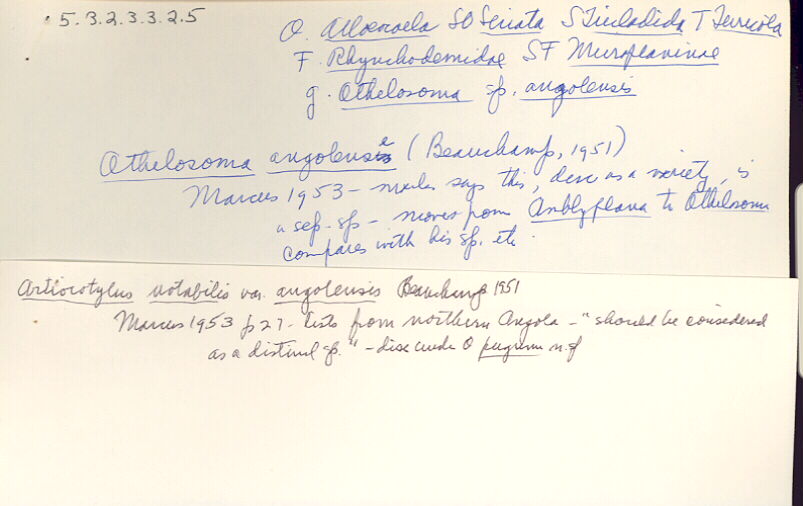 5.3.2.3.3.2.5
O. Alloeocoela SO Seriata S Tricladida T Terricola
F. Rhynchodemidae SF Microplaninae
g. Othelosoma sp. angolensis
Othelosoma angolense (Beauchamp, 1951)
Marcus 1953 - says this, desc as a variety, is
a sep. sp - moves from Amblyplana to Othelosoma
compares with his sp. etc.
Artiocotylus notabilis var. angolensis Beauchamp 1951
Marcus 1953 p 27 - lists from northern Angola - "should be considered
as a distinct sp." - disc under O pugrum n. sp